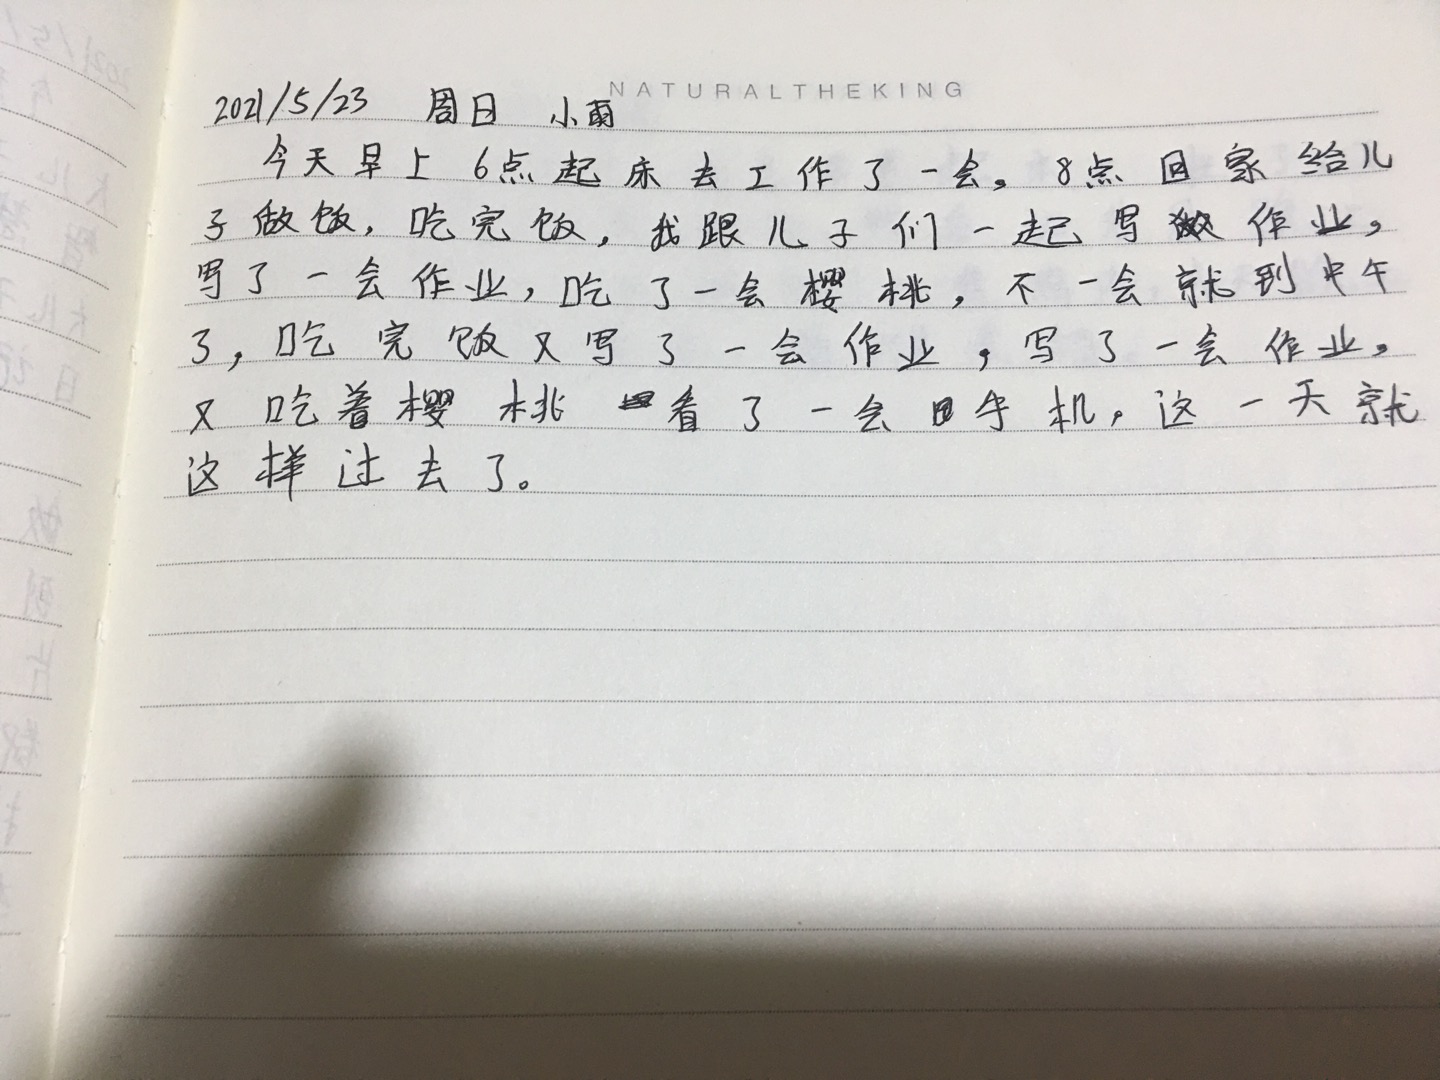 NATURALTHEKING
2021/5/23 周日 小雨
今天早上6点起床去工作了一会。8点回家给儿
子做饭，吃完饭，我跟儿子们一起写作业，
写了一会作业，吃了一会樱桃，不一会就到中午
了，吃完饭又写了一会作业，写了一会作业，
又吃着樱桃看了一会手机，这一天就
这样过去了。